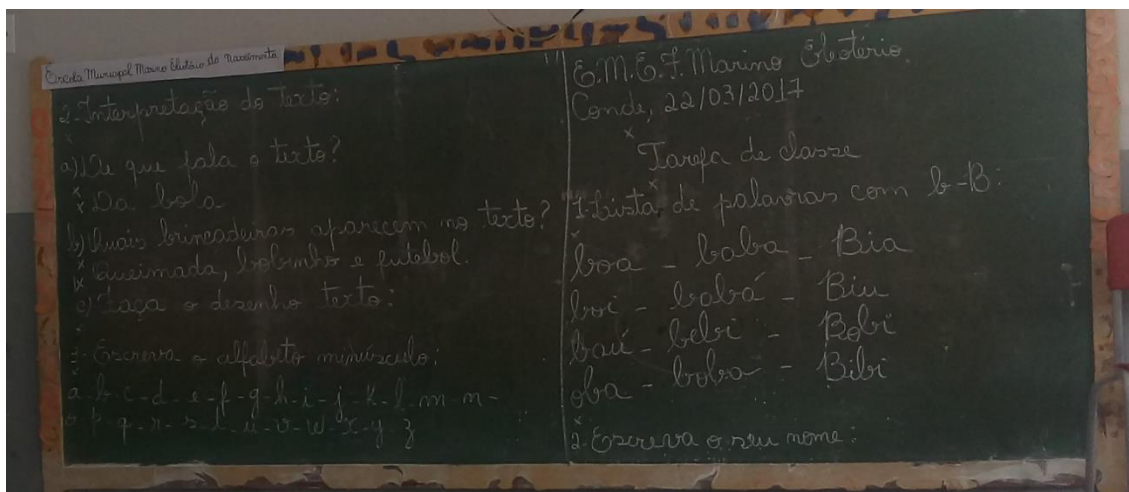 Escola Municipal Marino Eleotério do Nascimento
2-Interpretação do texto:
a) De que fala o texto?
Da bola
b) Quais brincadeiras aparecem no texto?
Queimada, bobinho e futebol.
c) Faça o desenho texto:
1-Escreva o alfabeto minúsculo:
a-b-c-d-e-f-g-h-i-j-k-l-m-n-
o-p-q-r-s-t-u-v-w-x-y-z
E.M.E.F. Marino Eleotério.
Conde, 22/03/2017
Tarefa de classe
1-Lista de palavras com b-B:
boa - baba - Bia
boi - babá - Biu
baú - bebi - Bobi
oba - boba - Bibi
2-Escreva o seu nome: